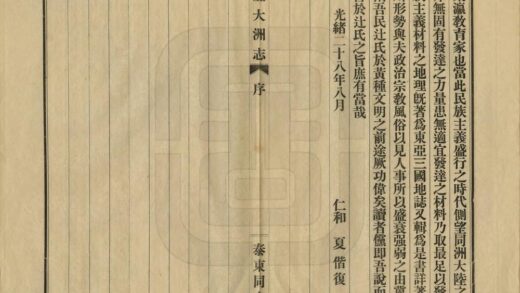 瀛教育家也當此民族主義盛行之時代側望同洲大陸之
無固有發達之力量患無適宜發達之材料乃取最足以發
主義材料之地理旣著爲東亞三國地誌又輯爲是書詳著
形勢與夫政治宗敎風俗以見人事所以盛衰强弱之由
吾民辻氏於黃種文明之前途厥功偉矣讀者儻卽吾說而
於辻氏之旨庶有當哉
光緒二十八年八月
仁和 夏偕復
大洲志 序
泰東同